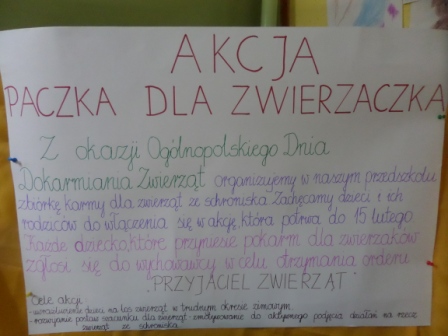 AKCJA
PACZKA DLA ZWIERZACZKA
Z okazji Ogólnopolskiego Dnia
Dokarmiania Zwierząt organizujemy w naszym przedszkolu
zbiórkę karmy dla zwierząt ze schroniska Zachęcamy dzieci i ich
rodziców do włączenia się w akcję, która potrwa do 15 lutego
Każde dziecko, które przyniesie pokarm dla zwierzaków
zgłosi się do wychowawcy w celu otrzymania orderu
"PRZYJACIEL ZWIERZĄT"
Cele akcji
- uwrażliwienie dzieci na los zwierząt w trudnym okresie zimowym
- rozwijanie postaw szacunku dla zwierząt - zmotywowanie do aktywnego podjęcia działań na rzecz
zwierząt ze schroniska